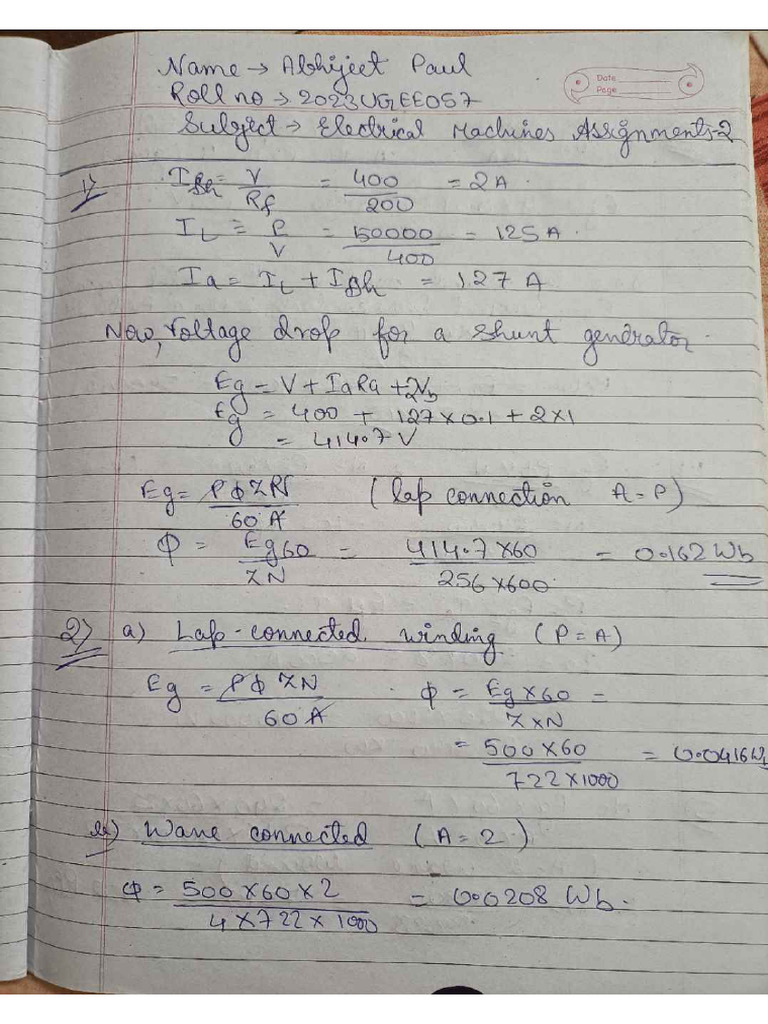 Name → Abhijeet Paul
Date
Page
Roll no → 2023UGEE057
Subject → Electrical Machines Assignments-2
1) Ish = V/Rf = 400/200 = 2 A
IL = P/V = 50000/400 = 125 A.
Ia = IL + Ish = 127 A
Now, Voltage drop for a shunt generator.
Eg = V + IaRa + 2Vb
Eg = 400 + 127×0.1 + 2×1
= 414.7 V
Eg = PΦZN/60A (lap connection A = P)
Φ = Eg60/ZN = 414.7×60/256×600 = 0.162 Wb
2) a) Lap-connected winding (P = A)
Eg = PΦZN/60A . Φ = Eg×60/Z×N =
= 500×60/722×1000 = 0.0416 Wb
b) Wave connected (A = 2)
Φ = 500×60×2/4×722×1000 = 0.0208 Wb.